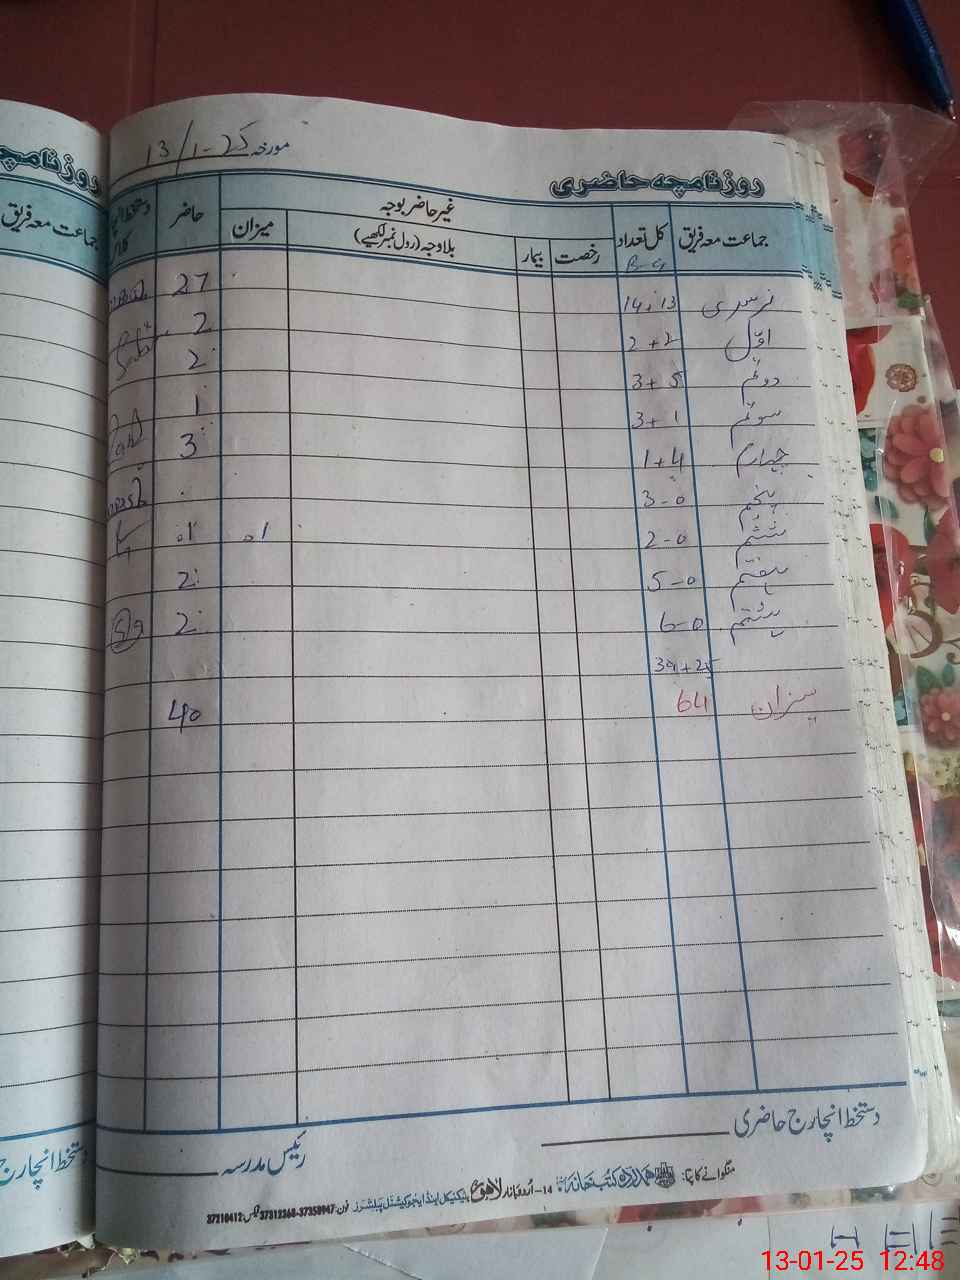 مورخہ 13/1-25
روزنامچہ حاضری
جماعت معہ فریق کل تعداد غیر حاضر بوجہ حاضر
رخصت بیمار بلاوجہ (رول نمبر لکھیے) میزان
B G
نرسری 14+13 27
اوّل 2+2 2
دوئم 3+5 2
سوئم 3+1 1
چہارم 1+4 3
پنجم 3-0
ششم 2-0 01 01
ہفتم 5-0 2
ہشتم 6-0 2
39+25
میزان 64 40
دستخط انچارج حاضری
رئیس مدرسہ
منگوانے کا پتہ: ہمدرد کتب خانہ 14-اردو بازار لاہور ٹیکنیکل اینڈ ایجوکیشنل پبلشرز فون: 37358947-37312368 فیکس: 37210412
روزنامچہ
جماعت معہ فریق
دستخط انچارج
13-01-25 12:48